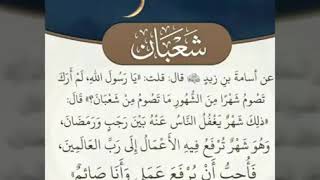 شَعْبَان
عن أسامة بن زيدٍ ﷺ قال: قلت: «يَا رَسُولَ اللهِ، لَمْ أَرَكَ
تَصُومُ شَهْرًا مِنَ الشُّهُورِ مَا تَصُومُ مِنْ شَعْبَانَ؟» قَالَ:
«ذَلِكَ شَهْرٌ يَغْفُلُ النَّاسُ عَنْهُ بَيْنَ رَجَبٍ وَرَمَضَانَ،
وَهُوَ شَهْرٌ تُرْفَعُ فِيهِ الأَعْمَالُ إِلَى رَبِّ الْعَالَمِينَ،
فَأُحِبُّ أَنْ يُرْفَعَ عَمَلِي وَأَنَا صَائِمٌ»